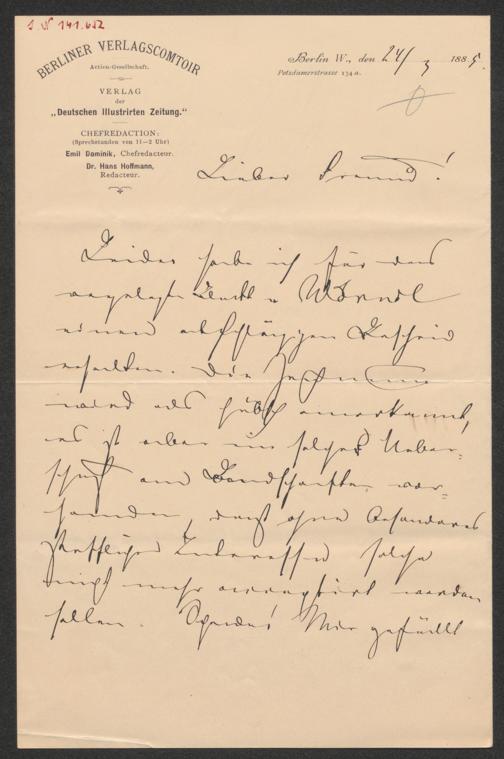 I. N 141.652
BERLINER VERLAGSCOMTOIR
Actien-Gesellschaft.
VERLAG
der
„Deutschen Illustrirten Zeitung."
CHEFREDACTION:
(Sprechstunden von 11—2 Uhr)
Emil Dominik, Chefredacteur.
Dr. Hans Hoffmann,
Redacteur.
Berlin W., den 24/3 1885.
Potsdamerstrasse 134a.
Lieber Freund!
Leider habe ich für das
Wörndl
einen abschlägigen Bescheid
erhalten. Die Zeichnung
wird als hübsch anerkannt,
es ist aber ein solcher Ueber-
schuß an Landschaften vor-
handen, daß ohne besonderes
stoffliches Interesse solche
nicht mehr acceptirt werden
sollen. Schade! Mir gefällt